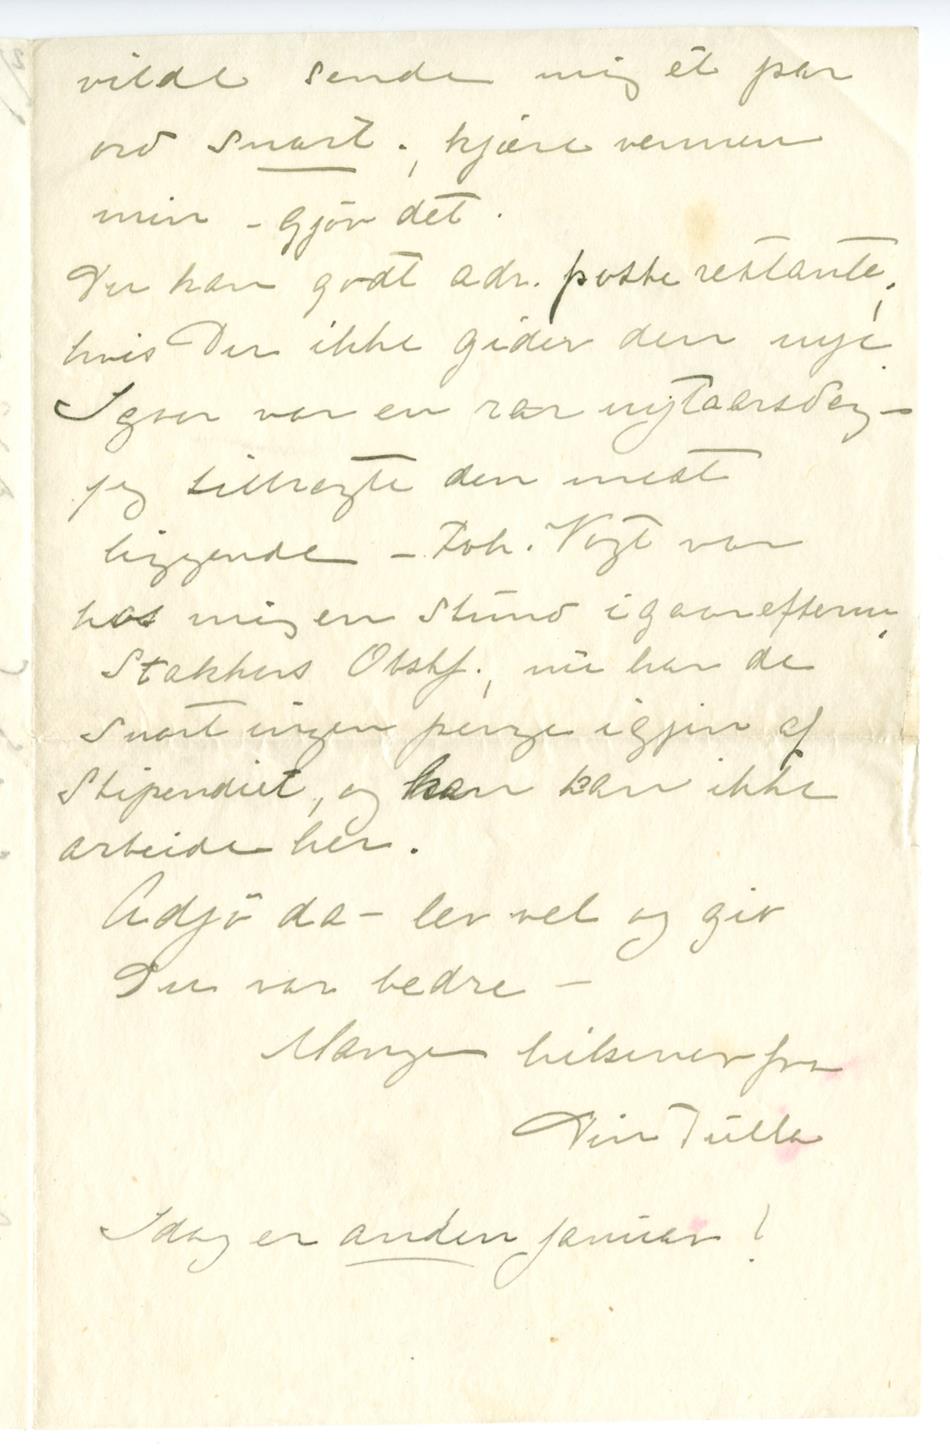 vilde sende mig et par
ord snart, kjære vennen
min – gjør det.
Du kan godt adr. poste restante,
hvis Du ikke gider den nye.
Igaar var en rar nytaarsdag –
jeg tilbragte den mest
liggende – Joh. Vogt var
hos mig en stund igaareftermi.
Stakkers Obstf., nu har de
snart ingen penge igjen af
Stipendiet, og han kan ikke
arbeide her.
Adjö da – lev vel og gid
Du var bedre –
Mange hilsener fra
Din Tulla
Idag er anden januar!